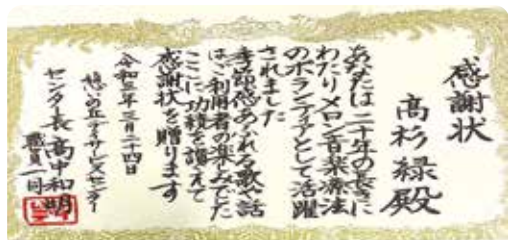 感謝状
高杉緑殿
あなたは二十年の長きに
わたりメロン音楽療法
のボランティアとして活躍
されました
季節感あふれる歌や話
はご利用者の楽しみでした
ここに功績を讃えて
感謝状を贈ります
令和三年三月二十四日
憩いの丘デイサービスセンター
センター長 高中和明
職員一同